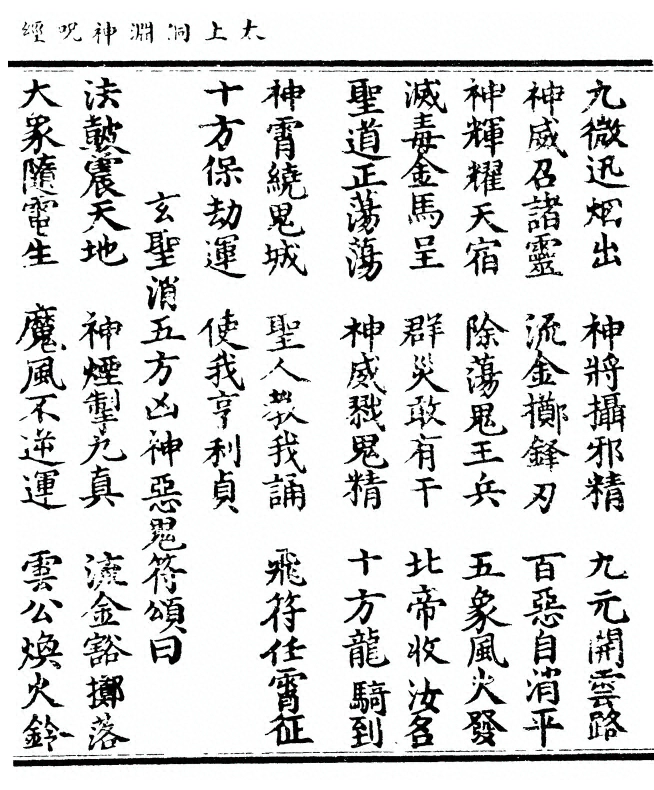 太上洞淵神呪經
九微迅烟出 神將攝邪精 九元開雲路
神威召諸靈 流金擲鋒刃 百惡自消平
神輝耀天宿 除蕩鬼王兵 五象風火發
滅毒金馬呈 群災敢有干 北帝收汝名
聖道正蕩蕩 神威戮鬼精 十方龍騎到
神霄繞鬼城 聖人教我誦 飛符任霄征
十方保劫運 使我亨利貞
玄聖消五方凶神惡鬼符頌曰
法鼓震天地 神煙掣九真 流金豁擲落
大象隨電生 魔風不逆運 雲公煥火鈴